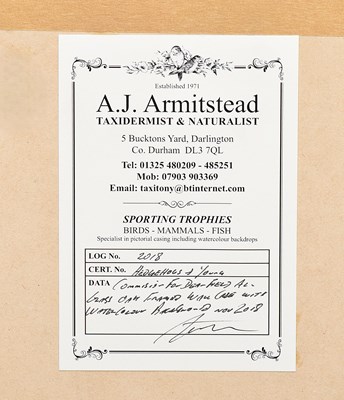 Established 1971
A.J. Armitstead
TAXIDERMIST & NATURALIST
5 Bucktons Yard, Darlington
Co. Durham DL3 7QL
Tel: 01325 480209 - 485251
Mob: 07903 903369
Email: taxitony@btinternet.com
SPORTING TROPHIES
BIRDS - MAMMALS - FISH
Specialist in pictorial casing including watercolour backdrops
LOG No. 2018
CERT. No. HEDGEHOGS & YOUNG
DATA COMMISSION FOR
GLASS OAK FRAMED WALL CASE WITH
WATERCOLOUR BACKGROUND NOV 2018